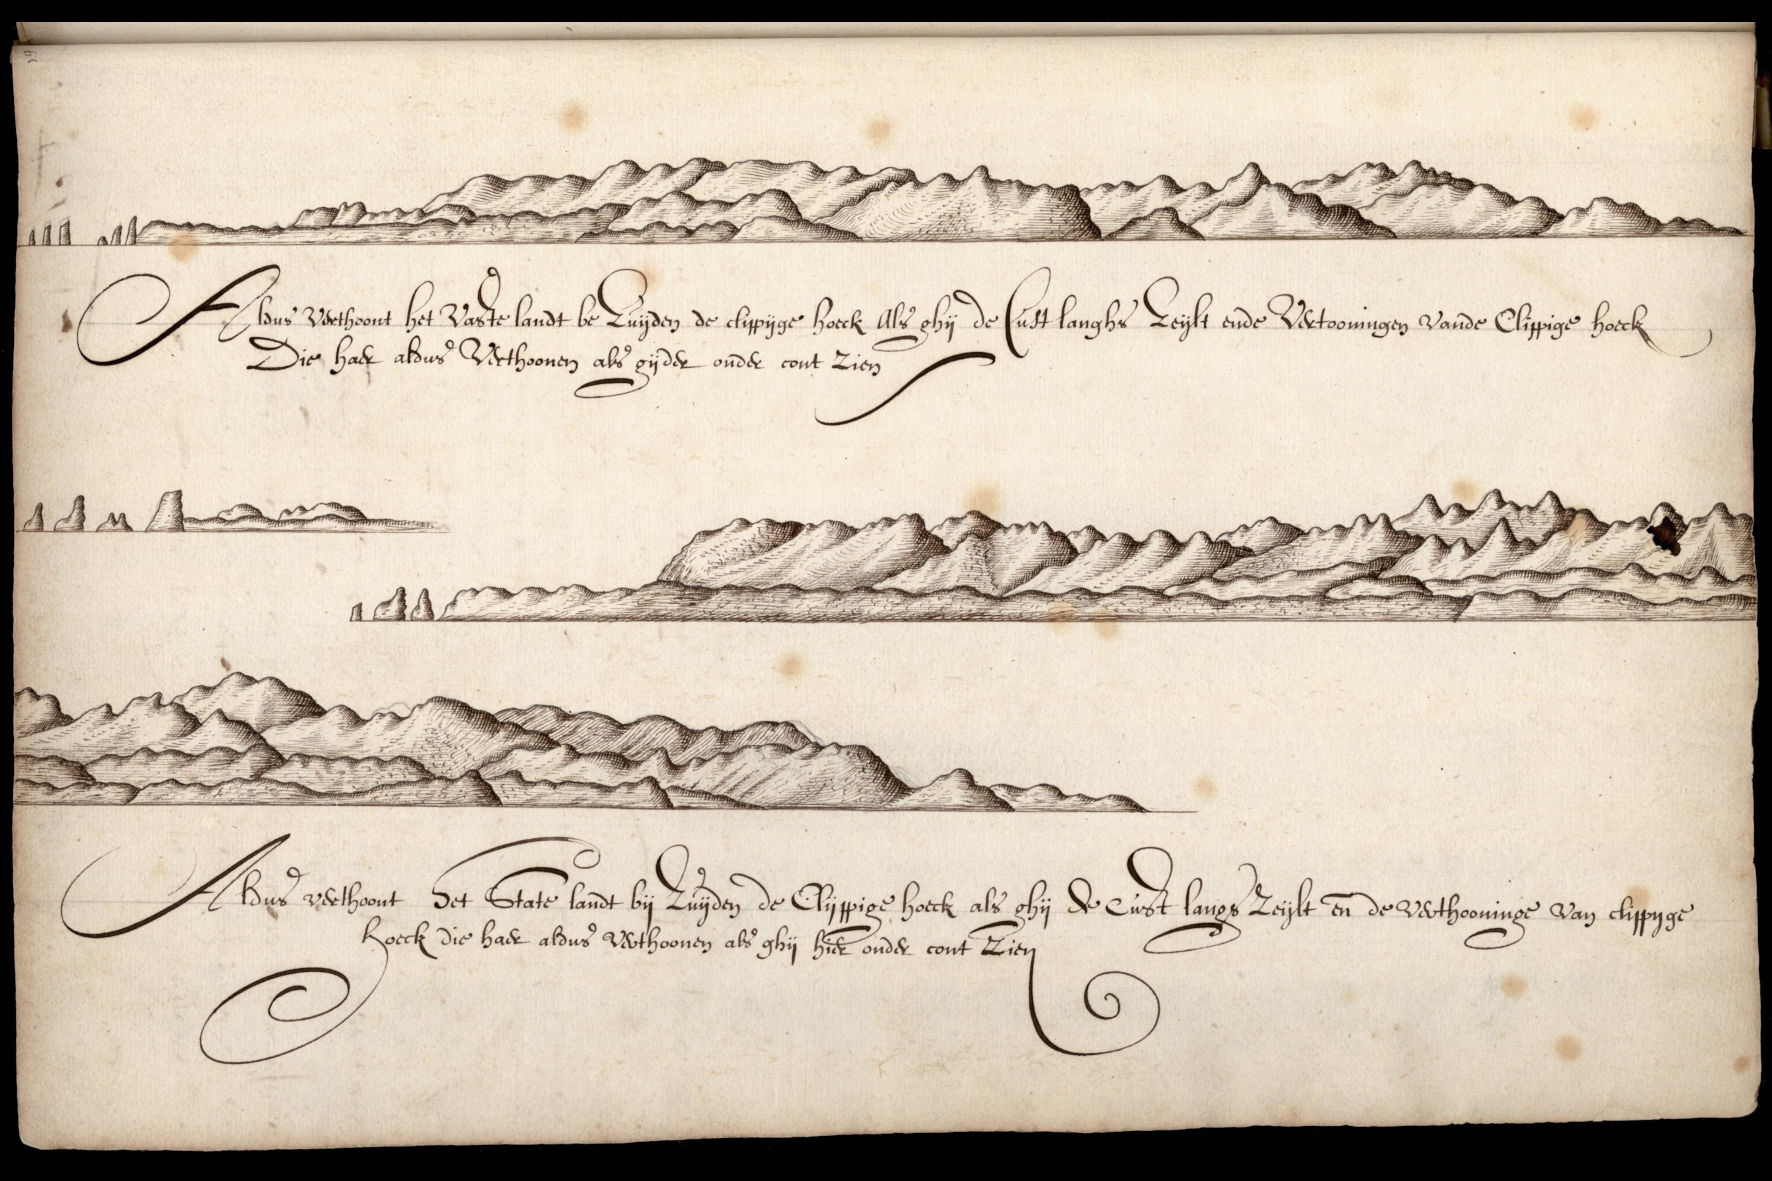 Aldus verthoont het vaste landt be Zuijden de clippijge hoeck als ghij de Cust langhs Zeijlt ende Vertooningen vande Clippige hoeck
Die haer aldus verthoonen als gijder onder cont zien
Aldus verthoont Het State landt bij Zuijden de Clijppige hoeck als ghij de Cust langs Zeijlt en de verthooninge van clippyge
hoeck die haer aldus verthoonen als ghij hier onder cont Zien